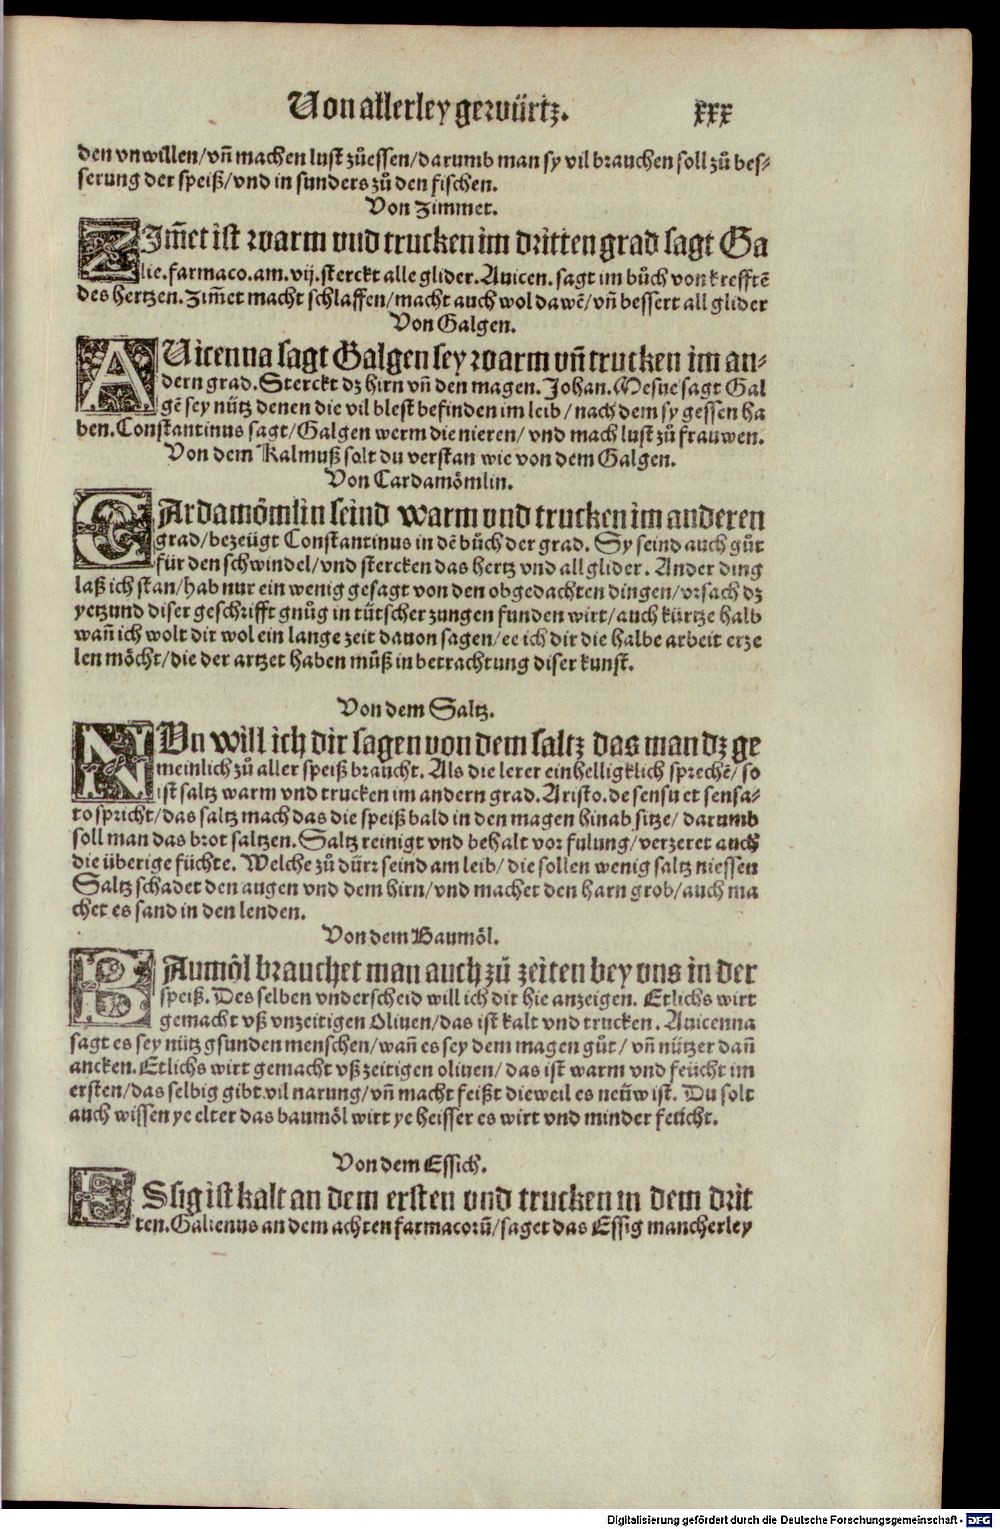 Von allerley gewürtz. xxx
den vnwillen/vñ machen lust zůessen/darumb man sy vil brauchen soll zů bes⸗
serung der speiß/vnd in sunders zů den fischen.
Von Zimmet.
ZIm̃et ist warm vnd trucken im dritten grad sagt Ga
lie.farmaco.am.vij.sterckt alle glider.Auicen.sagt im bůch von krefftẽ
des hertzen.Zim̃et macht schlaffen/macht auch wol dawẽ/vñ bessert all glider
Von Galgen.
AUicenna sagt Galgen sey warm vñ trucken im an⸗
dern grad.Sterckt dz hirn vñ den magen.Johan.Mesue sagt Gal
gẽ sey nütz denen die vil blest befinden im leib/nach dem sy gessen ha
ben.Constantinus sagt/Galgen werm die nieren/vnd mach lust zů frauwen.
Von dem Kalmuß solt du verstan wie von dem Galgen.
Von Cardamömlin.
CArdamömlin seind warm vnd trucken im anderen
grad/bezeügt Constantinus in dẽ bůch der grad. Sy seind auch gůt
für den schwindel/vnd stercken das hertz vnd all glider. Ander ding
laß ich stan/hab nur ein wenig gesagt von den obgedachten dingen/vrsach dz
yetzund diser geschrifft gnůg in tütscher zungen funden wirt/auch kürtze halb
wañ ich wolt dir wol ein lange zeit dauon sagen/ee ich dir die halbe arbeit erze
len möcht/die der artzet haben můß in betrachtung diser kunst.
Von dem Saltz.
NUn will ich dir sagen von dem saltz das man dz ge
meinlich zů aller speiß braucht. Als die lerer einhelligklich sprechẽ/so
ist saltz warm vnd trucken im andern grad.Aristo.de sensu et sensa⸗
to spricht/das saltz mach das die speiß bald in den magen hinab sitze/darumb
soll man das brot saltzen.Saltz reinigt vnd behalt vor fulung/verzeret auch
die überige füchte. Welche zů dürr seind am leib/die sollen wenig saltz niessen
Saltz schadet den augen vnd dem hirn/vnd machet den harn grob/auch ma
chet es sand in den lenden.
Von dem Baumöl.
BAumöl brauchet man auch zů zeiten bey vns in der
speiß.Des selben vnderscheid will ich dir hie anzeigen. Etlichs wirt
gemacht vß vnzeitigen Oliuen/das ist kalt vnd trucken. Auicenna
sagt es sey nütz gsunden menschen/wañ es sey dem magen gůt/vñ nützer dañ
ancken.Etlichs wirt gemacht vß zeitigen oliuen/das ist warm vnd feücht im
ersten/das selbig gibt vil narung/vñ macht feißt dieweil es neüw ist. Du solt
auch wissen ye elter das baumöl wirt ye heisser es wirt vnd minder feücht.
Von dem Essich.
ESsig ist kalt an dem ersten vnd trucken in dem drit
ten.Galienus an dem achten farmacorũ/saget das Essig mancherley
Digitalisierung gefördert durch die Deutsche Forschungsgemeinschaft - DFG